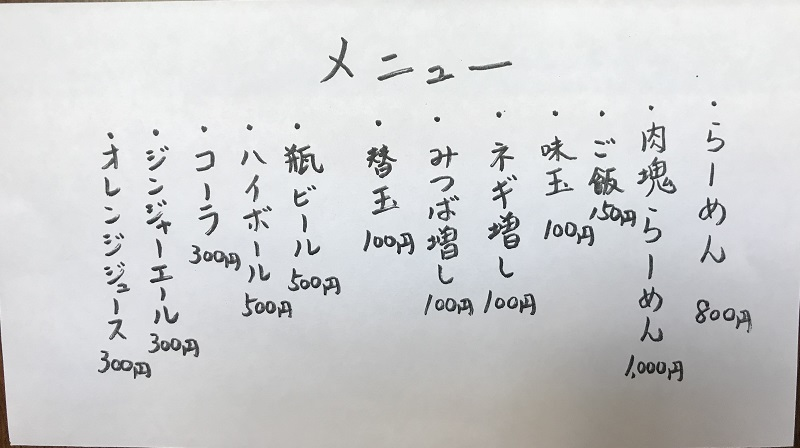 メニュー
・らーめん 800円
・肉塊らーめん 1,000円
・ご飯 150円
・味玉 100円
・ネギ増し 100円
・みつば増し 100円
・替玉 100円
・瓶ビール 500円
・ハイボール 500円
・コーラ 300円
・ジンジャーエール 300円
・オレンジジュース 300円